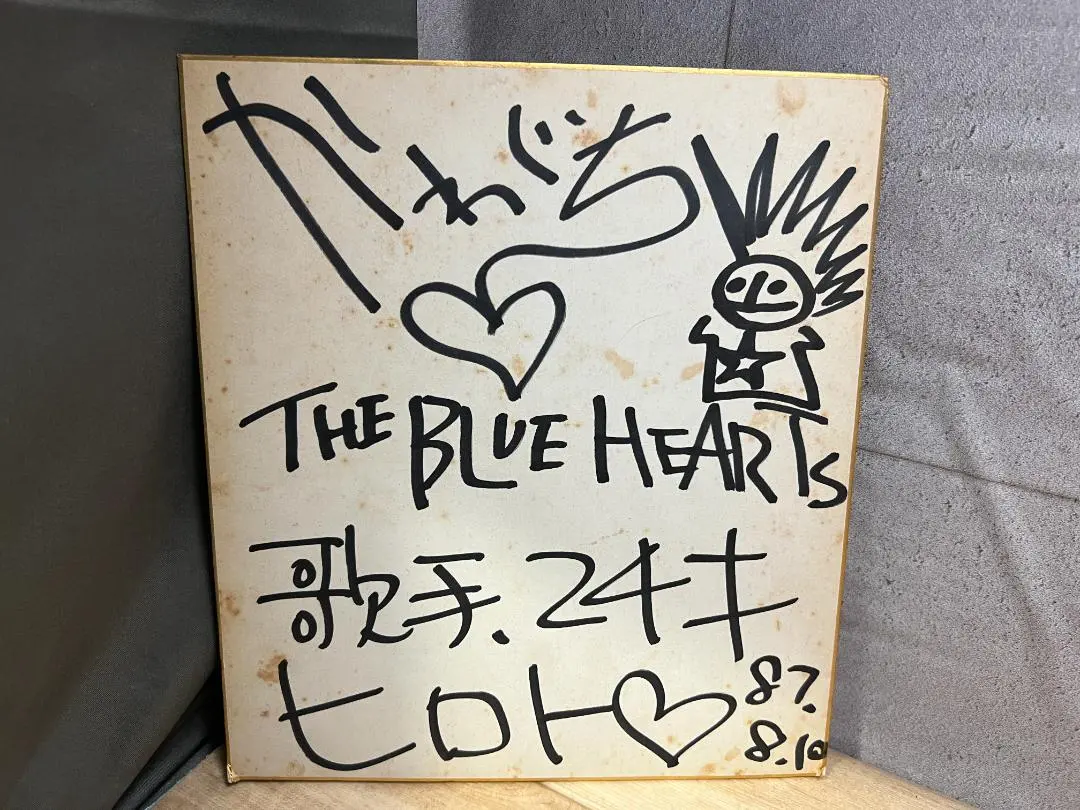 かわぐち
THE BLUE HEARTS
歌手、24才
ヒロト
87.
8.10